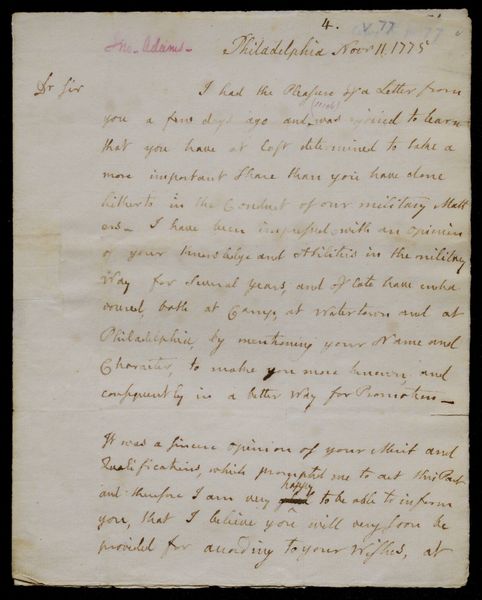 4. V. 77
Jno. Adams
Philadelphia Novr 11. 1775
Dr Sir I had the Pleasure of a Letter from
you a few days ago and was rejoiced to learn
that you have at last determined to take a
more important Share than you have done
hitherto in the Conduct of our military Matt
ers. I have been impressed with an opinion
of your Knowledge and Abilities in the military
Way for several years, and of late have endea
voured, both at Camp, at Watertown and at
Philadelphia, by mentioning your Name and
Character, to make you more known, and
consequently in a better Way for Promotion.
It was a sincere opinion of your Merit and
Qualifications, which prompted me to act this Part
and therefore I am very happy to be able to inform
you, that I believe you will very soon be
provided for according to your Wishes, at